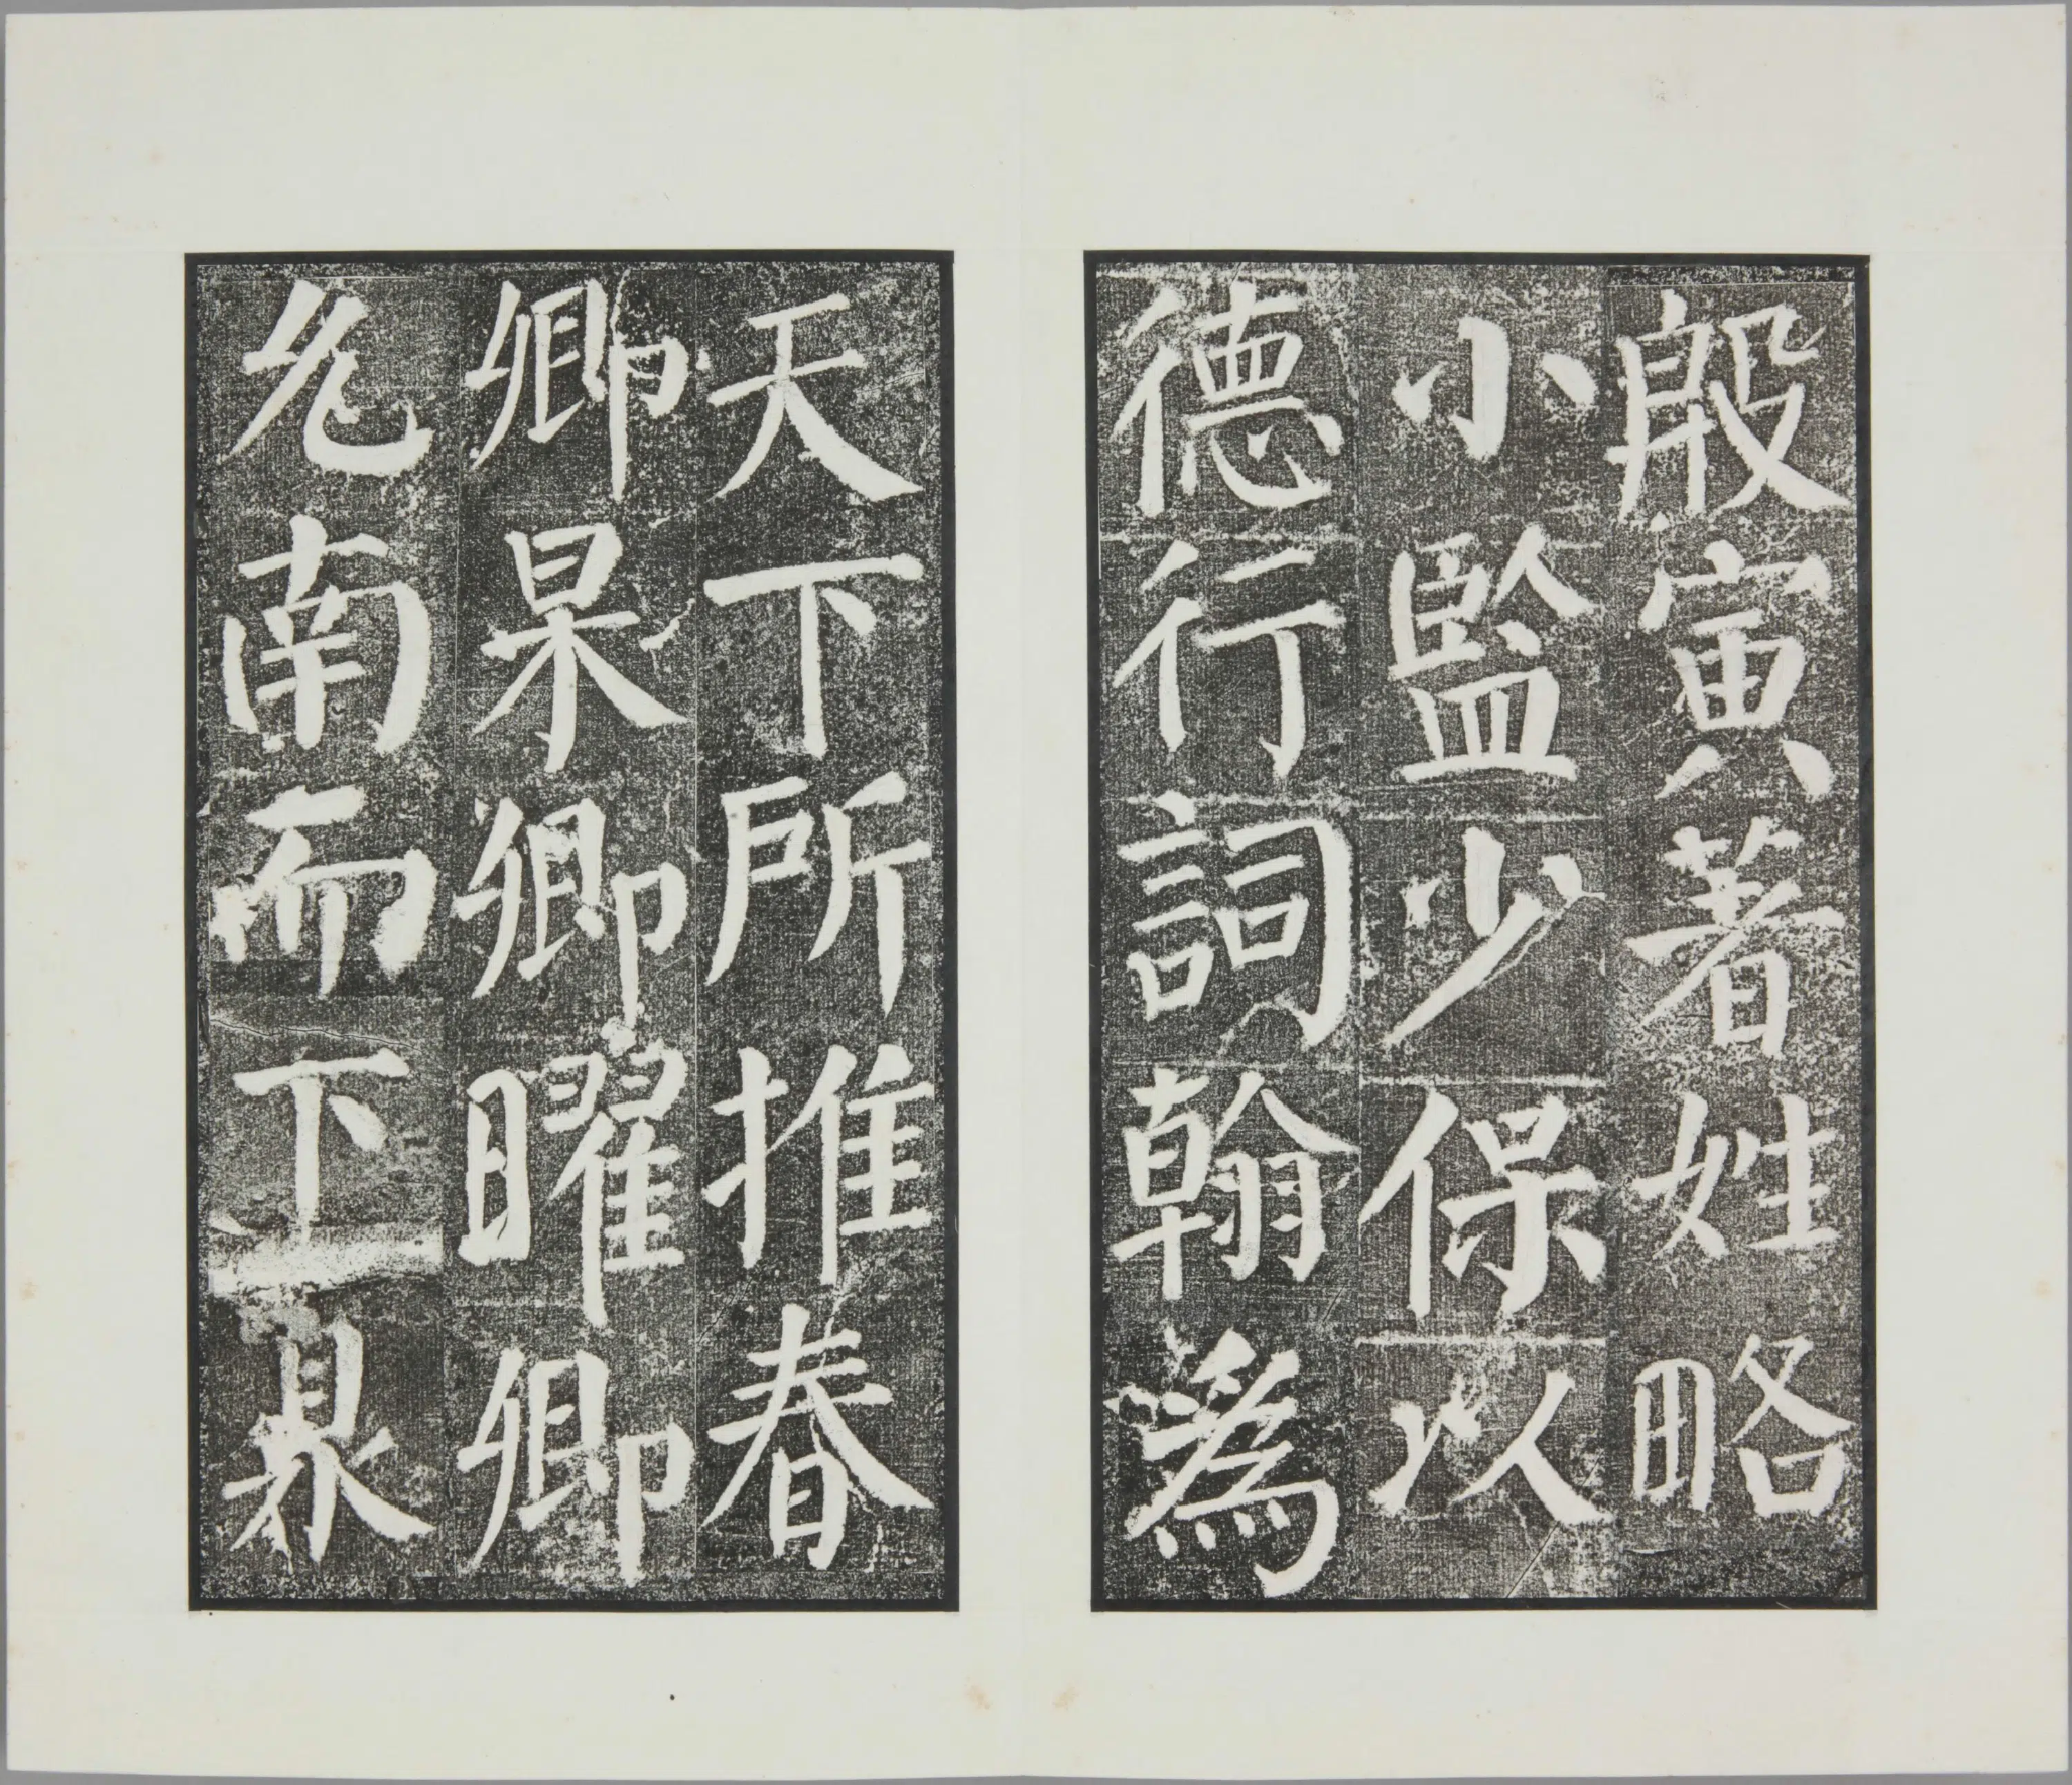 殷寅著姓略
小監少保以
德行詞翰為
天下所推春
卿杲卿曜卿
允南而下臮